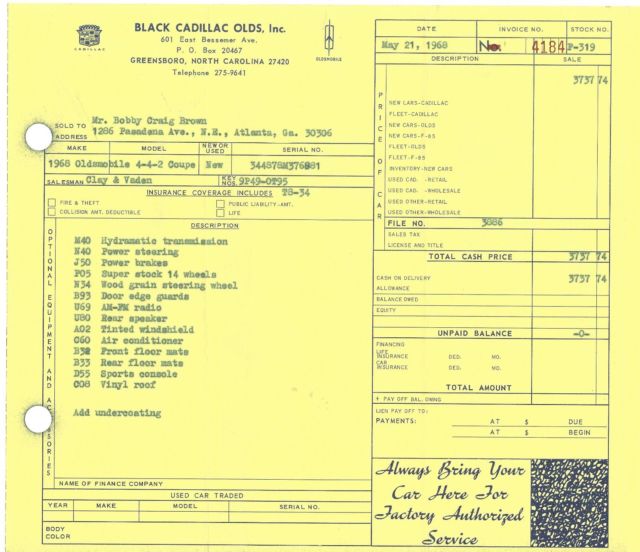 CADILLAC
BLACK CADILLAC OLDS, Inc.
601 East Bessemer Ave.
P. O. Box 20467
GREENSBORO, NORTH CAROLINA 27420
Telephone 275-9641
OLDSMOBILE
DATE INVOICE NO. STOCK NO.
May 21, 1968 No. 4184 P-319
DESCRIPTION SALE
3737 74
PRICE OF CAR
NEW CARS-CADILLAC
FLEET-CADILLAC
NEW CARS-OLDS
NEW CARS-F-85
FLEET-OLDS
FLEET-F-85
INVENTORY-NEW CARS
USED CAD. -RETAIL
USED CAD. -WHOLESALE
USED OTHER-RETAIL
USED OTHER-WHOLESALE
FILE NO. 3886
SALES TAX
LICENSE AND TITLE
TOTAL CASH PRICE 3737 74
CASH ON DELIVERY 3737 74
ALLOWANCE
BALANCE OWED
EQUITY
UNPAID BALANCE -0-
FINANCING
LIFE INSURANCE DED. MO.
CAR INSURANCE DED. MO.
TOTAL AMOUNT
+ PAY OFF BAL. OWING
LIEN PAY OFF TO:
PAYMENTS: AT $ DUE
AT $ BEGIN
SOLD TO Mr. Bobby Craig Brown
ADDRESS 1286 Pasadena Ave., N.E., Atlanta, Ga. 30306
MAKE MODEL NEW OR USED SERIAL NO.
1968 Oldsmobile 4-4-2 Coupe New 344878M376981
SALESMAN Clay & Vaden KEY NOS. 9P49-OT95
INSURANCE COVERAGE INCLUDES TS-34
FIRE & THEFT PUBLIC LIABILITY-AMT.
COLLISION AMT. DEDUCTIBLE LIFE
DESCRIPTION
OPTIONAL EQUIPMENT AND ACCESSORIES
M40 Hydramatic transmission
N40 Power steering
J50 Power brakes
P05 Super stock 14 wheels
N34 Wood grain steering wheel
B93 Door edge guards
U69 AM-FM radio
U80 Rear speaker
A02 Tinted windshield
C60 Air conditioner
B32 Front floor mats
B33 Rear floor mats
D55 Sports console
C08 Vinyl roof
Add undercoating
NAME OF FINANCE COMPANY
USED CAR TRADED
YEAR MAKE MODEL SERIAL NO.
BODY COLOR
Always Bring Your
Car Here For
Factory Authorized
Service